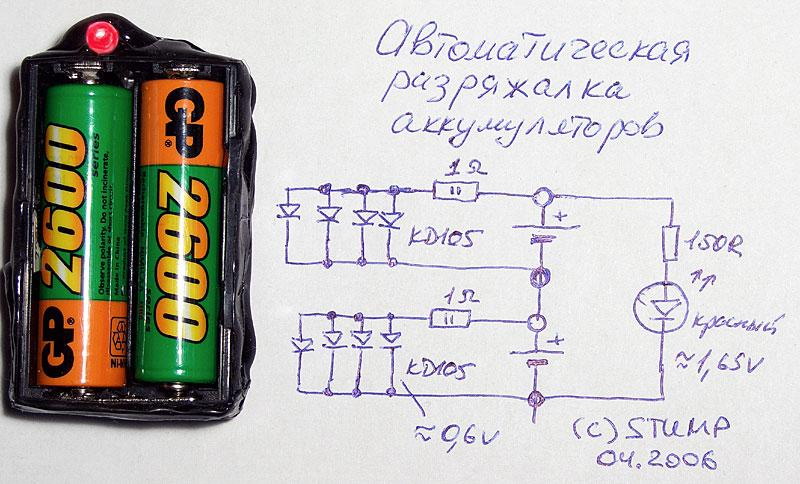 Автоматическая
разряжалка
аккумуляторов
1Ω
+
KD105
150R
красный
≈1,65V
1Ω
+
KD105
≈0,6V
(c) STUMP
04.2006
GP
2600
series
Observe polarity. Do not incinerate.
Made in China
GP
2600